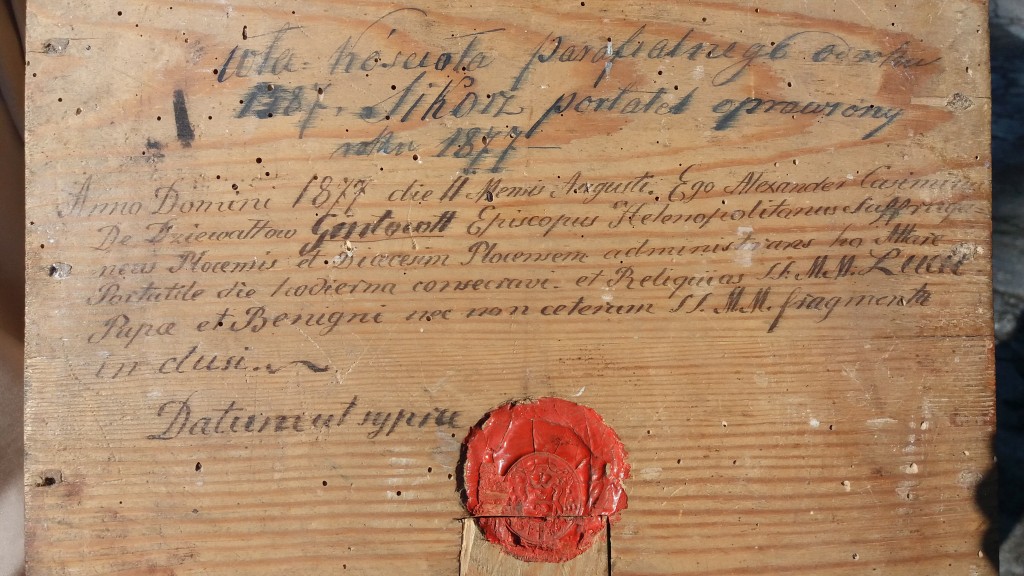 kościoła parafialnego od roku
Sikorz portatel oprawiony
roku 1877 —
Anno Domini 1877 die 11 Mensis Augusti. Ego Alexander Casimirus
De Dziewałtow Gintowtt Episcopus Helenopolitanus Suffraga-
neus Plocensis et Diæcesim Plocensem administrans ho Altare
Portatile die hodierna consecravi et Reliquias SS. M.M. Lucii
Papæ et Benigni nec non ceterum SS. M.M. fragmenta
in clusi.
Datum ut supra